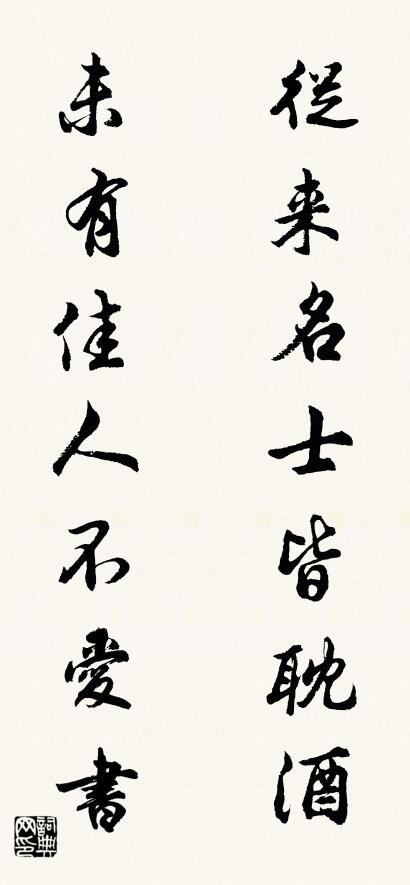 從来名士皆耽酒
未有佳人不愛書
詞典網印